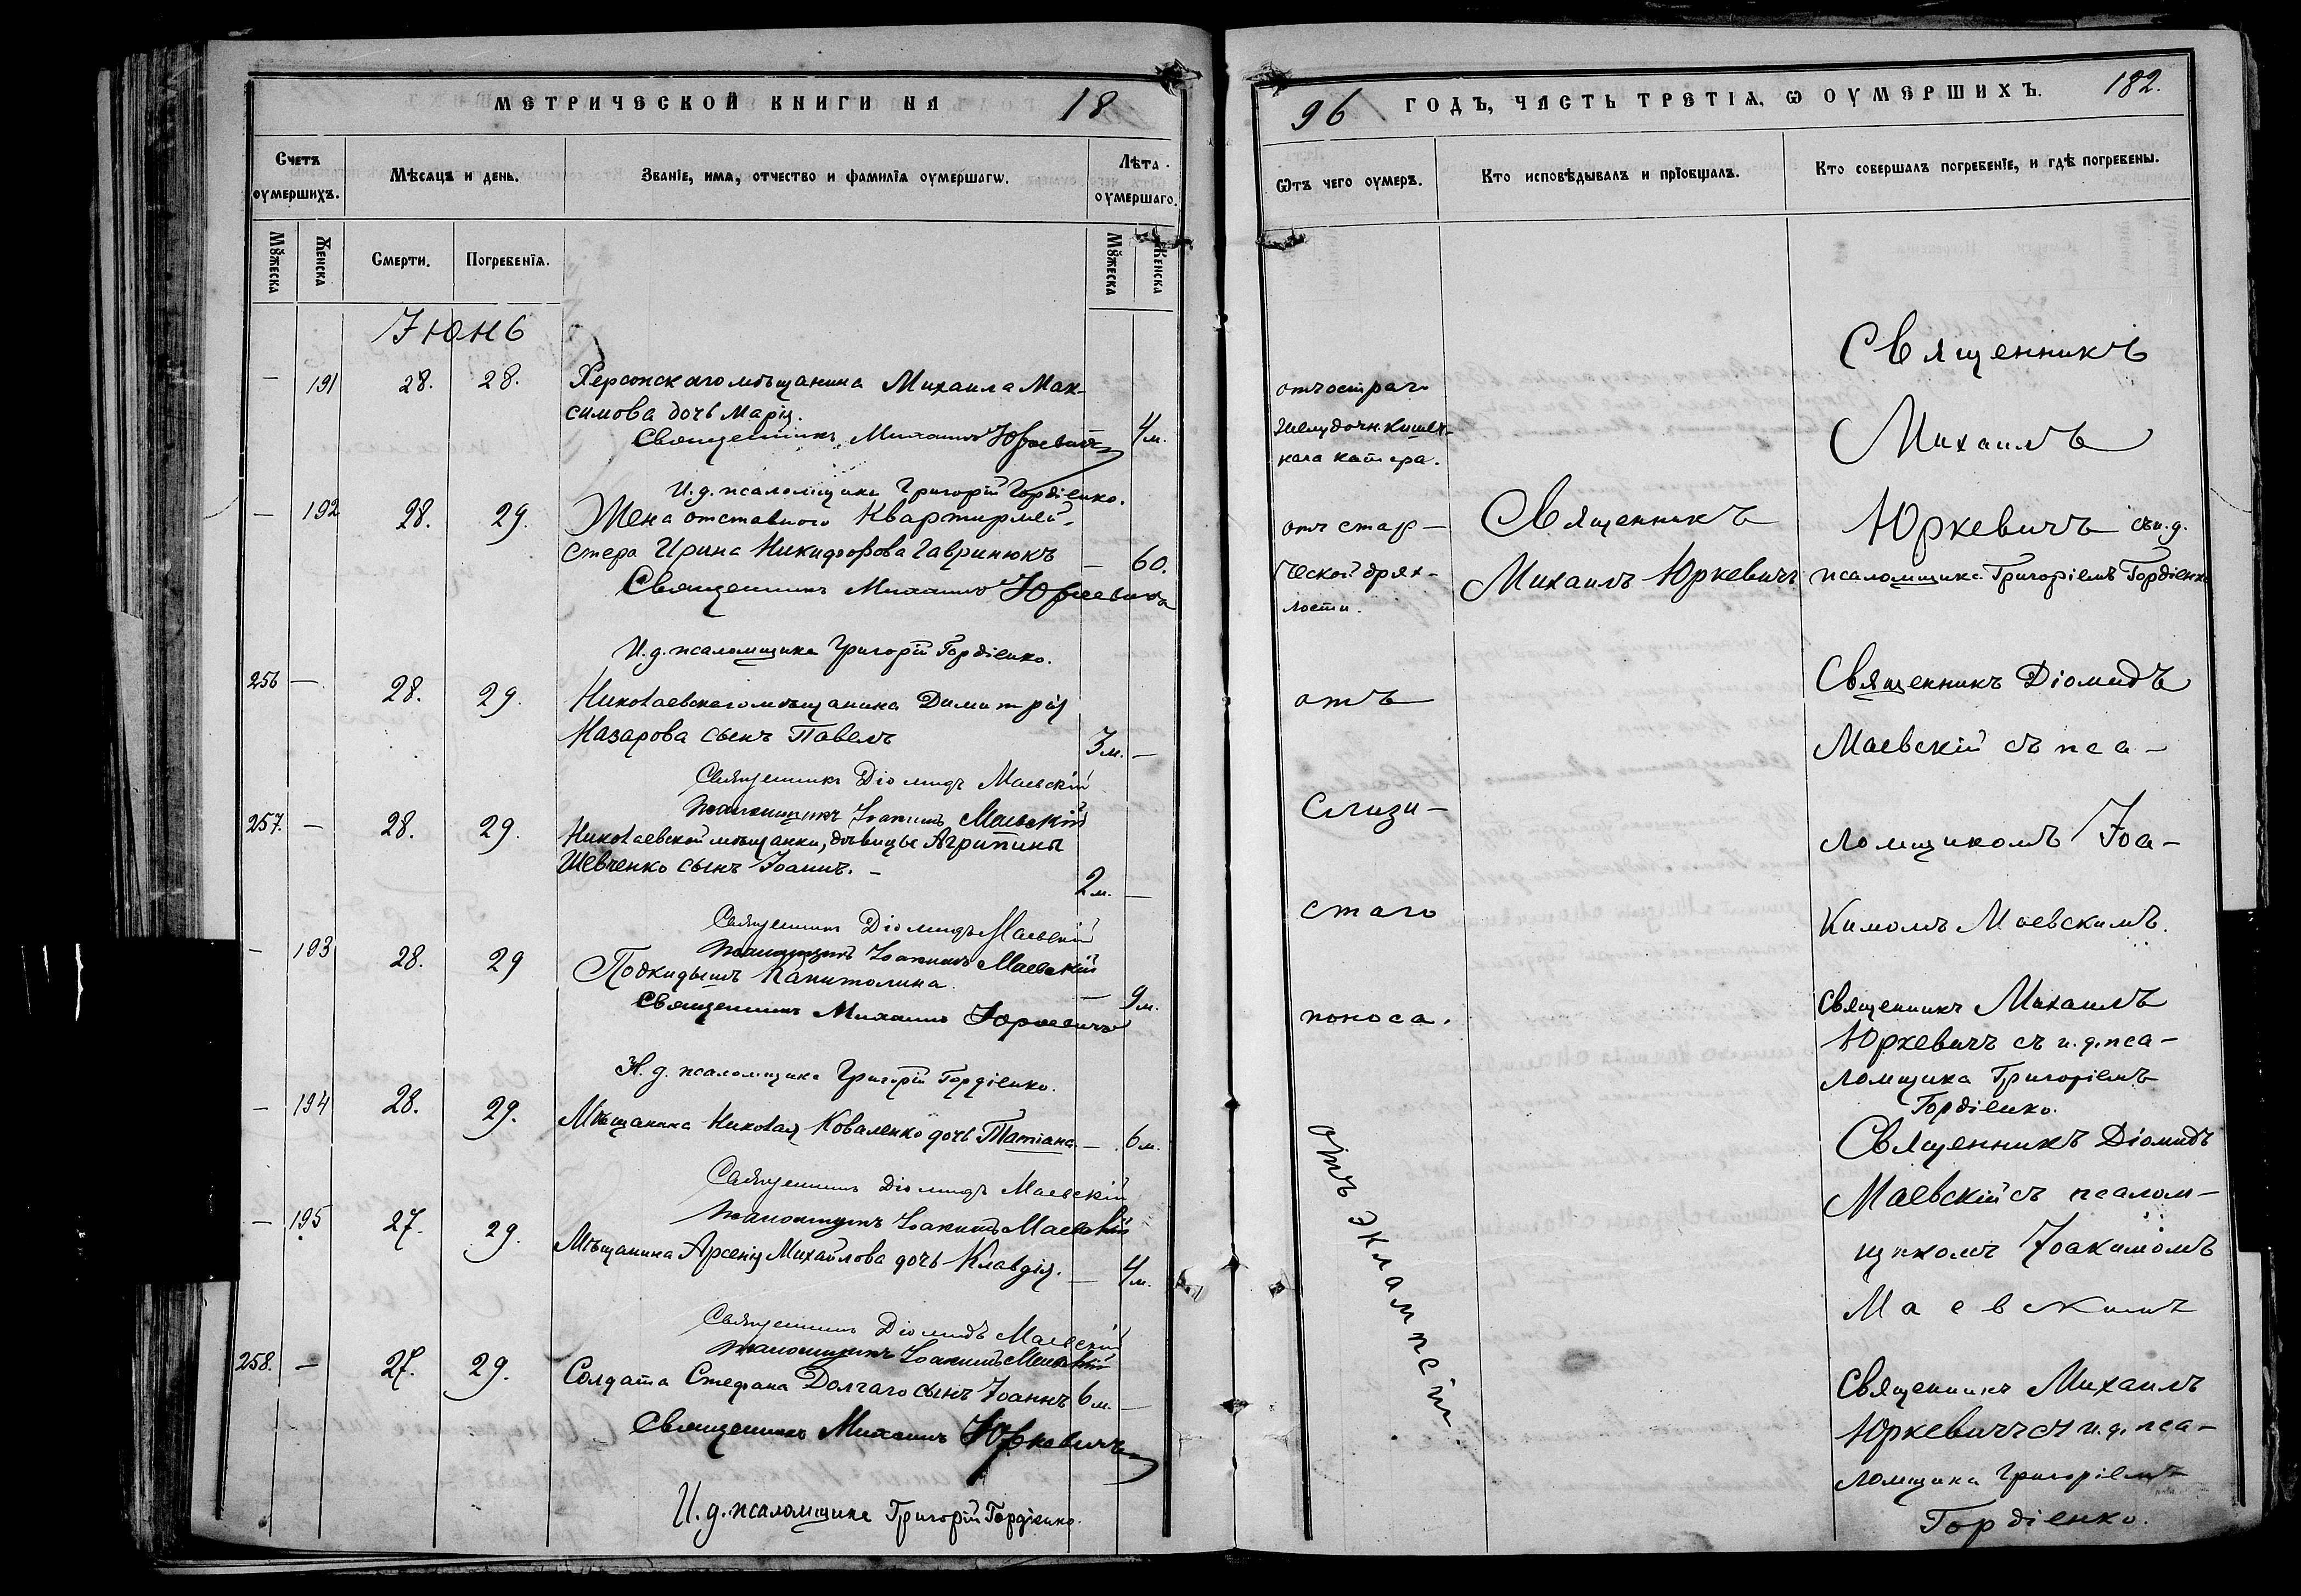 МЕТРИЧЕСКОЙ КНИГИ НА 18
Счетъ оумершихъ.
Мѣсяцъ и день.
Званіе, имя, отчество и фамилія оумершагѡ.
Лѣта оумершаго.
Мꙋжеска
Женска
Смерти.
Погребенія.
Мꙋжеска
Женска
Іюнь
— 191 28. 28. Херсонскаго мѣщанина Михаила Мак-
симова дочь Марія. 4 м.
Священникъ Михаилъ Юркевичъ
И. д. псаломщика Григорій Гордіенко.
— 192 28. 29. Жена отставного Квартирмей-
стера Ирина Никифорова Гавринюкъ — 60.
Священникъ Михаилъ Юркевичъ
И. д. псаломщика Григорій Гордіенко.
256 — 28. 29. Николаевскаго мѣщанина Димитрія
Назарова сынъ Павелъ 3 м. —
Священникъ Діомидъ Маевскій
Псаломщикъ Іоакимъ Маевскій
257. — 28. 29. Николаевской мѣщанки, дѣвицы Агрипины
Шевченко сынъ Іоаннъ. — 2 м. —
Священникъ Діомидъ Маевскій
Псаломщикъ Іоакимъ Маевскій
— 193 28. 29 Подкидышъ Капитолина. — 9 м.
Священникъ Михаилъ Юркевичъ
И. д. псаломщика Григорій Гордіенко.
— 194 28. 29. Мѣщанина Николая Коваленко дочь Татіана — 6 м.
Священникъ Діомидъ Маевскій
Псаломщикъ Іоакимъ Маевскій
— 195 27. 29. Мѣщанина Арсенія Михайлова дочь Клавдія. — 4 м.
Священникъ Діомидъ Маевскій
Псаломщикъ Іоакимъ Маевскій
258. — 27. 29. Солдата Стефана Долгаго сынъ Іоаннъ 6 м. —
Священникъ Михаилъ Юркевичъ
И. д. псаломщика Григорій Гордіенко.
96 ГОДЪ, ЧАСТЬ ТРЕТІЯ, Ѡ ОУМЕРШИХЪ. 182.
Ѿтъ чего оумеръ.
Кто исповѣдывалъ и пріобщалъ.
Кто совершалъ погребеніе, и гдѣ погребены.
отъ остраго
желудочн. кишеч-
наго катара.
отъ стар-
ческой дрях-
лости.
отъ
слизи-
стаго
поноса.
отъ эклампсіи.
Священникъ
Михаилъ Юркевичъ
Священникъ
Михаилъ
Юркевичъ съ и. д.
псаломщика Григоріемъ Гордіенко
Священникъ Діомидъ
Маевскій съ пса-
ломщикомъ Іоа-
кимомъ Маевскимъ.
Священникъ Михаилъ
Юркевичъ съ и. д. пса-
ломщика Григоріемъ
Гордіенко.
Священникъ Діомидъ
Маевскій съ псалом-
щикомъ Іоакимомъ
Маевскимъ
Священникъ Михаилъ
Юркевичъ съ и. д. пса-
ломщика Григоріемъ
Гордіенко.